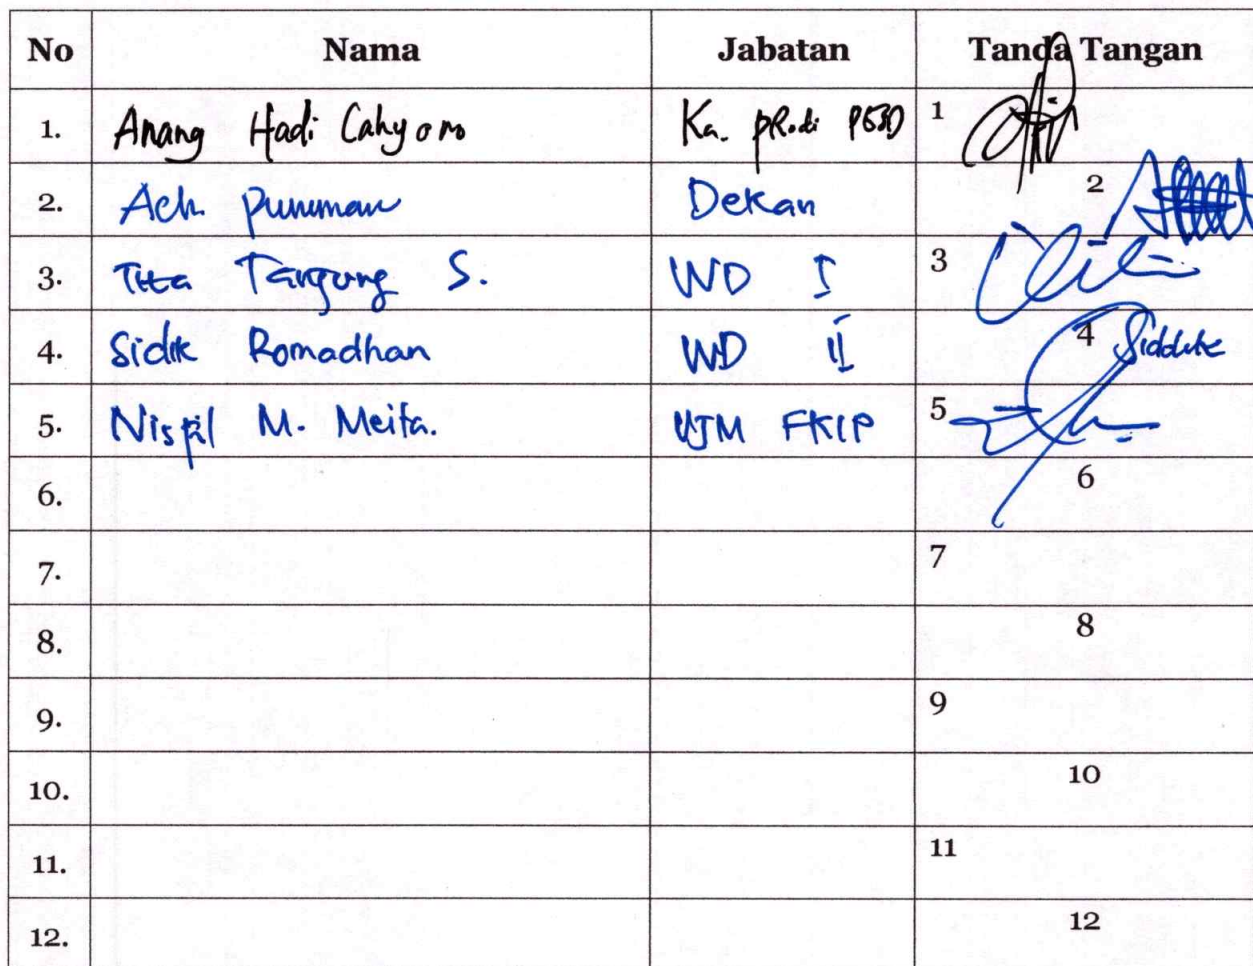 No Nama Jabatan Tanda Tangan
1. Anang Hadi Cahyono Ka. pRodi PGSD 1
2. Ach. Punuman Dekan 2
3. Tita Tanjung S. WD I 3
4. Sidik Romadhan WD II 4 Siddike
5. Nispil M. Meifa. UJM FKIP 5
6. 6
7. 7
8. 8
9. 9
10. 10
11. 11
12. 12